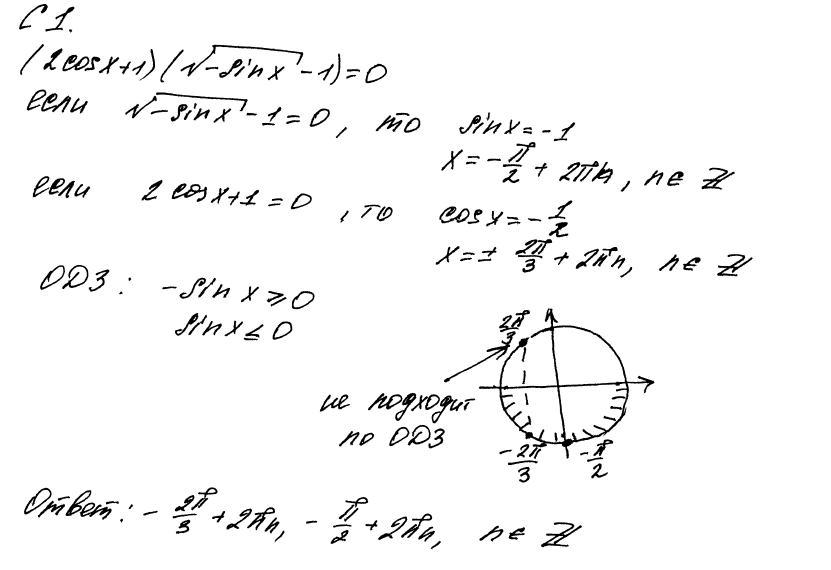 С 1.
(2cosx+1)(√(-sinx) -1)=0
если √(-sinx) -1=0, то sinx=-1
x=-π/2+2πn, n∈ℤ
если 2cosx+1=0, то cosx=-1/2
x=± 2π/3+2πn, n∈ℤ
ОДЗ: -sin x ⩾ 0
sinx ≤ 0
2π/3
не подходит
по ОДЗ
-2π/3
-π/2
Ответ: - 2π/3+2πn, - π/2+2πn, n∈ℤ